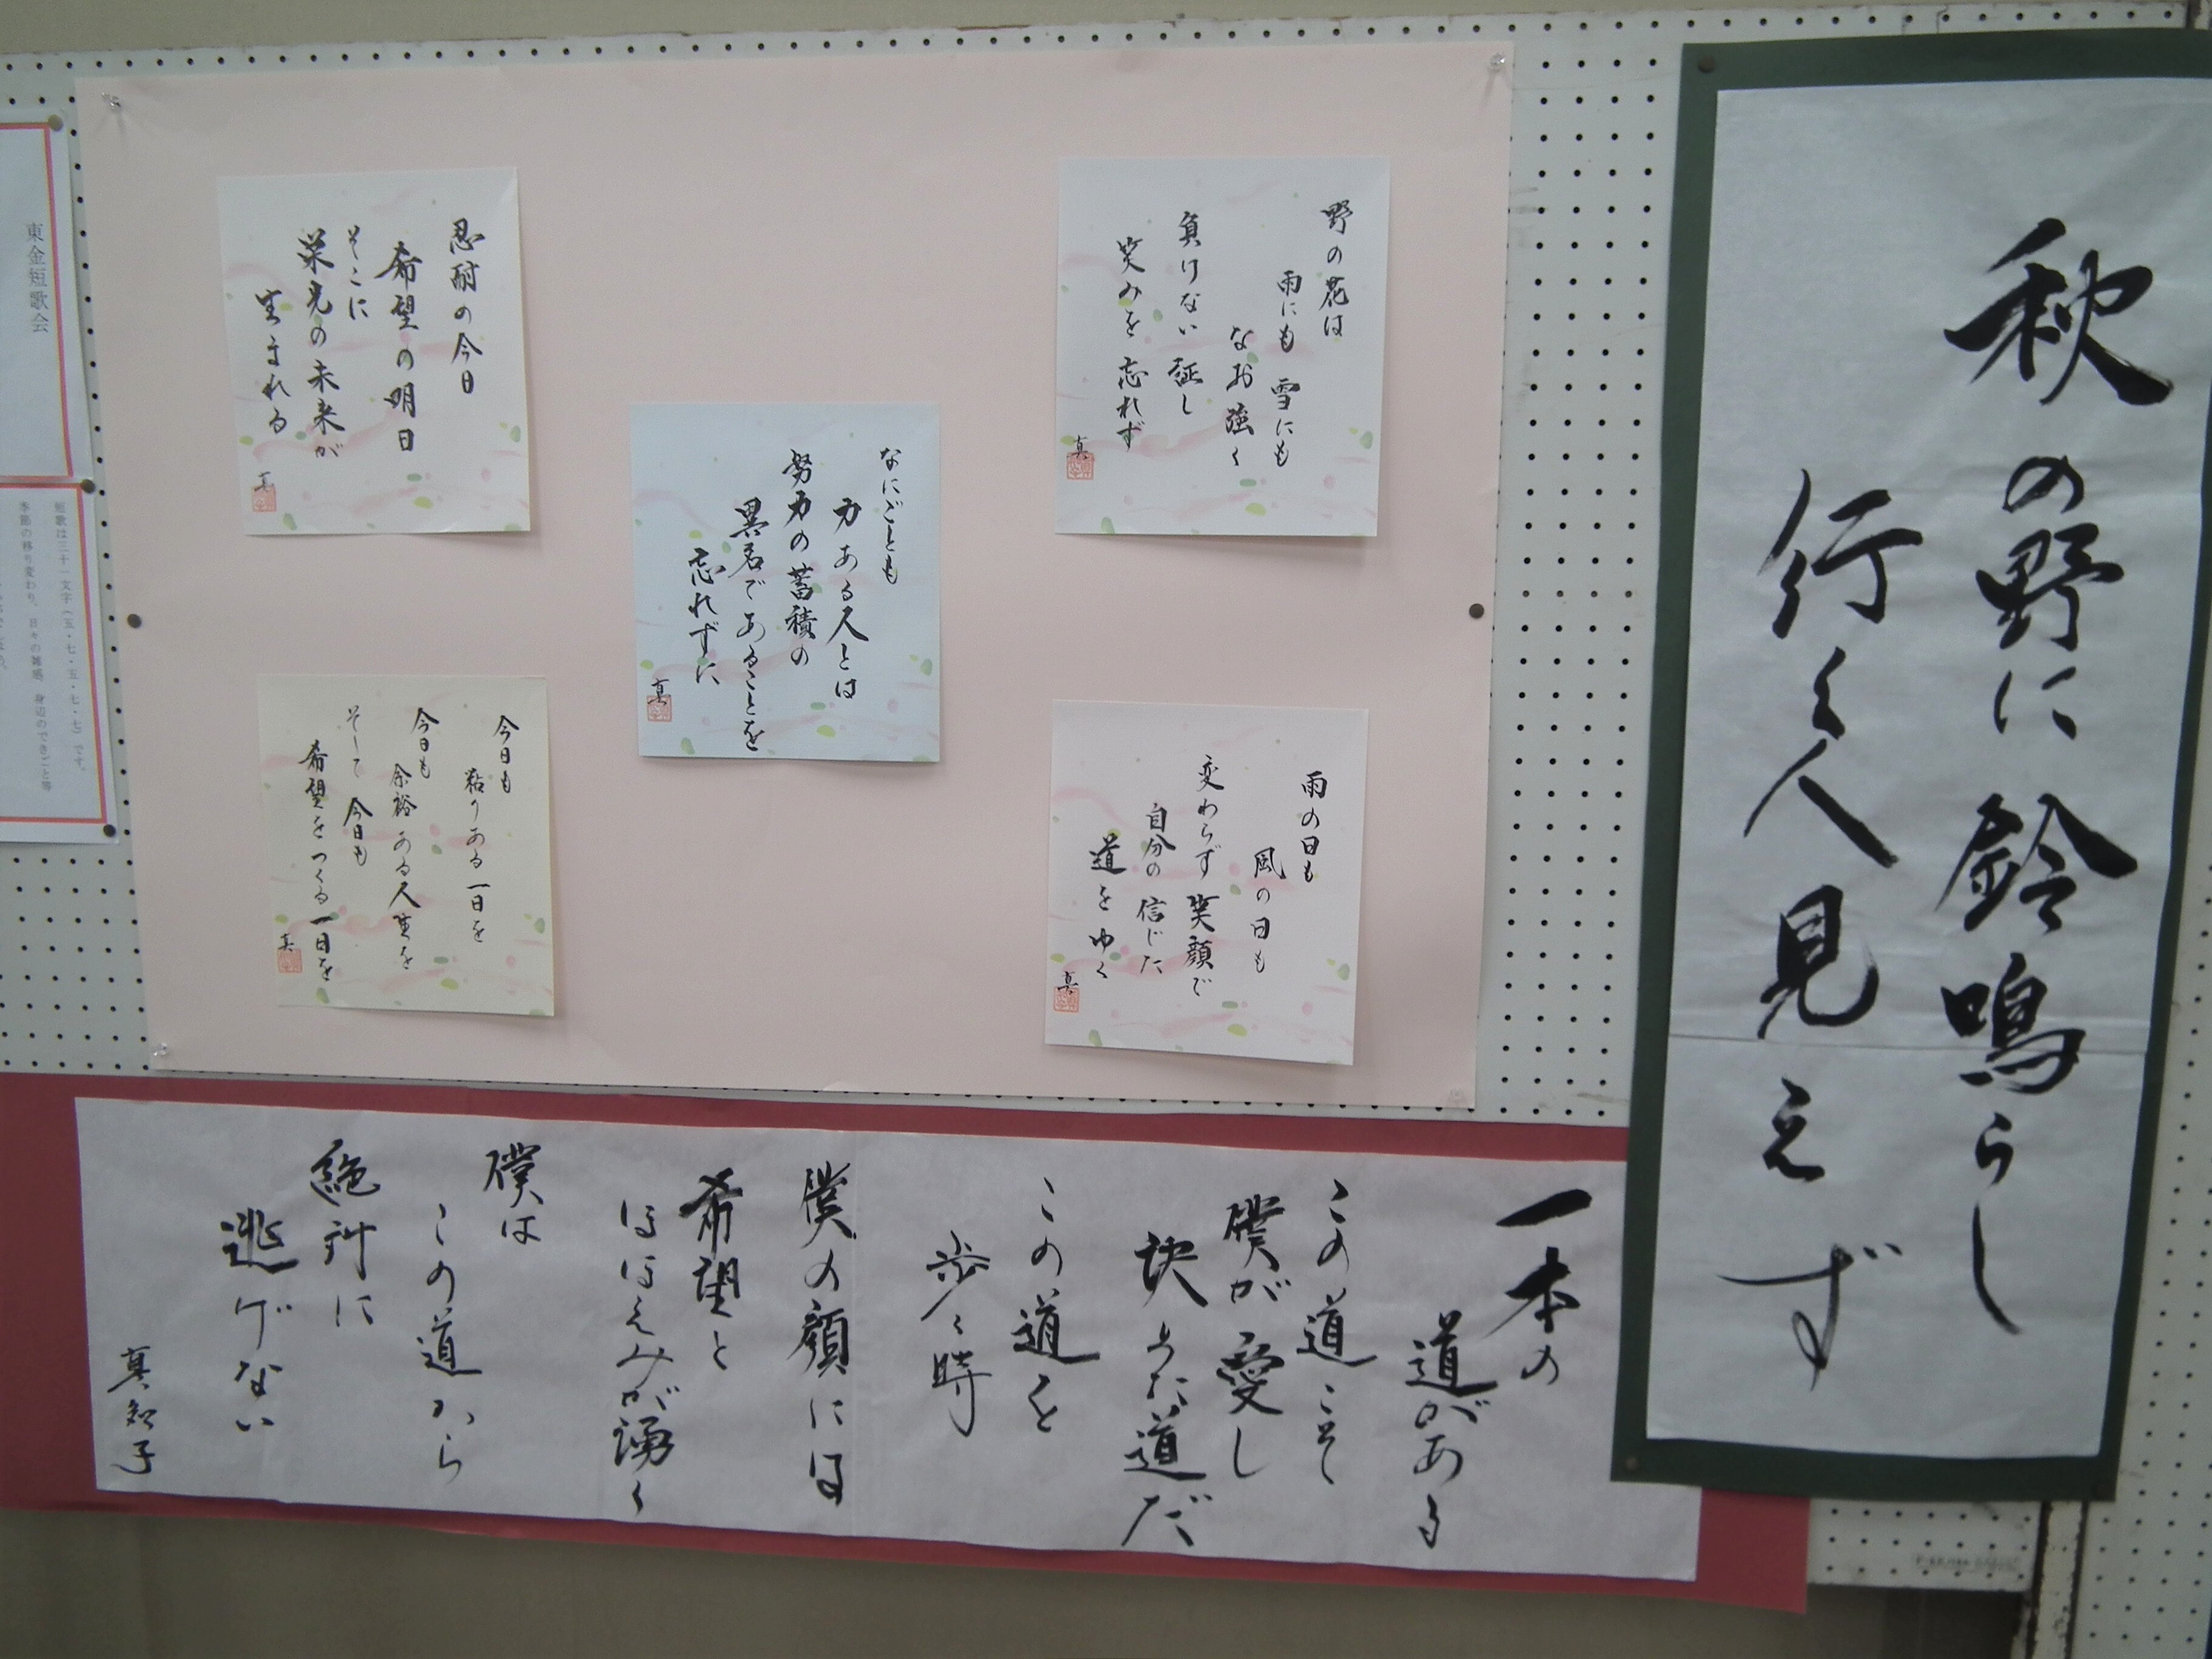 秋の野に鈴鳴らし
行く人見えず
野の花は
雨にも 雪にも
なお強く
負けない証し
笑みを忘れず
真
雨の日も
風の日も
変わらず笑顔で
自分の信じた
道をゆく
真
なにごとも
力ある人とは
努力の蓄積の
異名であることを
忘れずに
真
忍耐の今日
希望の明日
そこに
栄光の未来が
生まれる
真
今日も
粘りある一日を
今日も
余裕ある人生を
そして 今日も
希望をつくる一日を
真
一本の
道がある
この道こそ
僕が愛し
訣めた道だ
この道を
歩く時
僕の顔には
希望と
ほほえみが湧く
僕は
この道から
絶対に
逃げない
真智子
東金短歌会
短歌は三十一文字(五・七・五・七・七)です。
季節の移り変わり、日々の雑感、身辺のできごと等